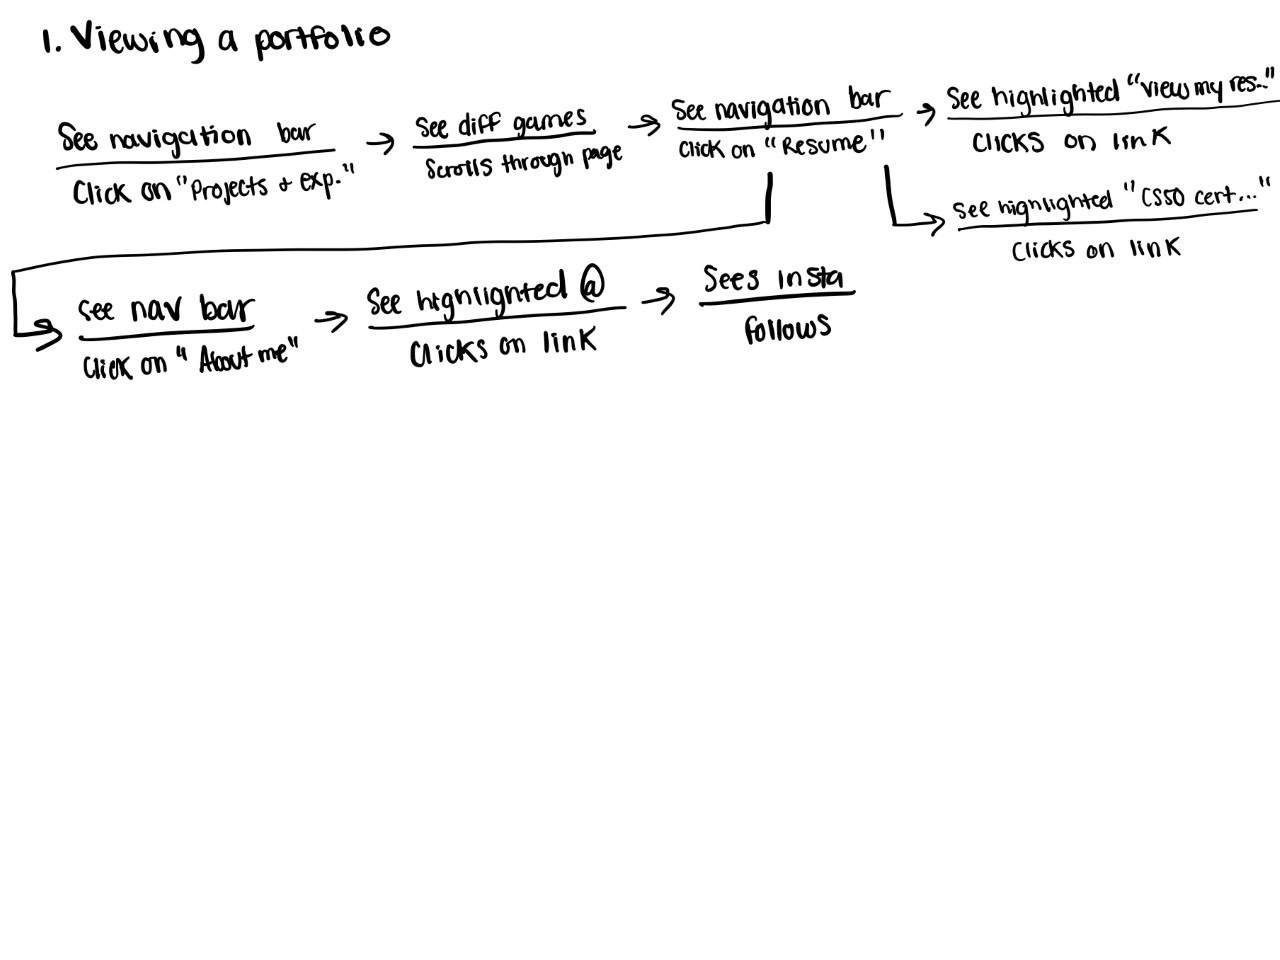 1. Viewing a portfolio
See navigation bar
Click on "Projects + exp."
See diff games
Scrolls through page
See navigation bar
Click on "Resume"
See highlighted "view my res.."
Clicks on link
See highlighted "CS50 cert..."
Clicks on link
See nav bar
Click on "About me"
See highlighted @
Clicks on link
Sees insta
follows